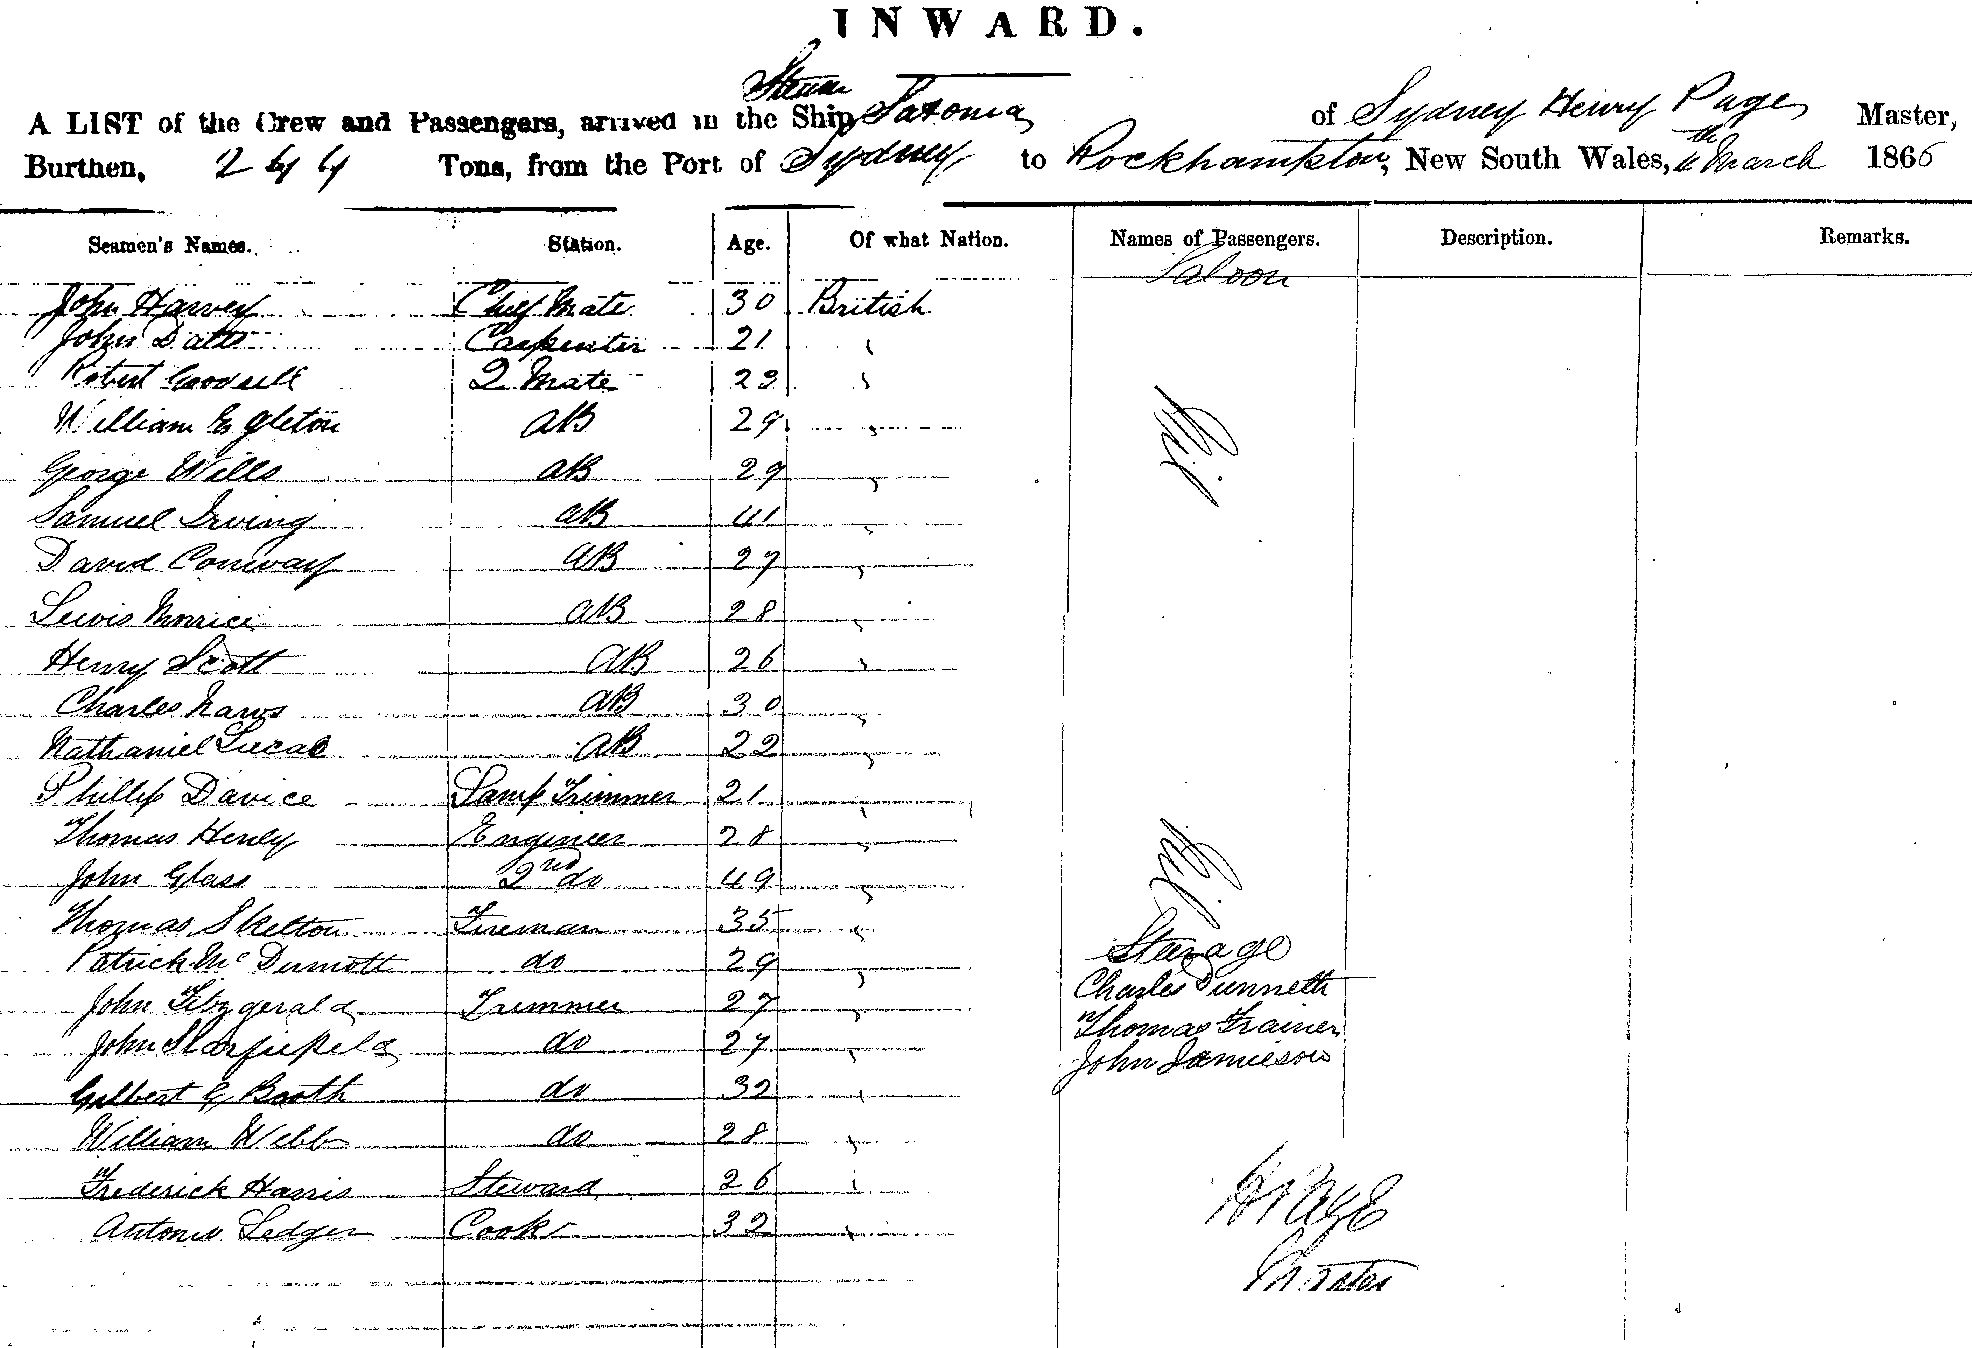 INWARD.
A LIST of the Crew and Passengers, arrived in the Steam Ship Saxonia of Sydney Henry Page Master,
Burthen, 244 Tons, from the Port of Sydney to Rockhampton, New South Wales, March 1866
Seamen's Names. Station. Age. Of what Nation. Names of Passengers. Description. Remarks.
Saloon
John Harvey Chief Mate 30 British
John Datts Carpenter 21 "
Robert Goodsell 2 Mate 23 "
William Egleton AB 29 "
George Wills AB 29 "
Samuel Irving AB 41 "
David Conway AB 27 "
Lewis Morrice AB 28 "
Henry Scott AB 26 "
Charles Naws AB 30 "
Nathaniel Lucas AB 22 "
Phillip Davice Lamp Trimmer 21 "
Thomas Henly Engineer 28 "
John Glass 2nd do 49 "
Thomas Skelton Fireman 35 "
Patrick McDumott do 29 "
John Fitzgerald Trimmer 27 "
John do 27 "
Gilbert G Booth do 32 "
William Webb do 28 "
Frederick Harris Steward 26 "
Antonio Ledger Cook 32 "
Nil
Nil
Sterage
Charles Dunneth
Thomas Trainer
John Jamieson
Master